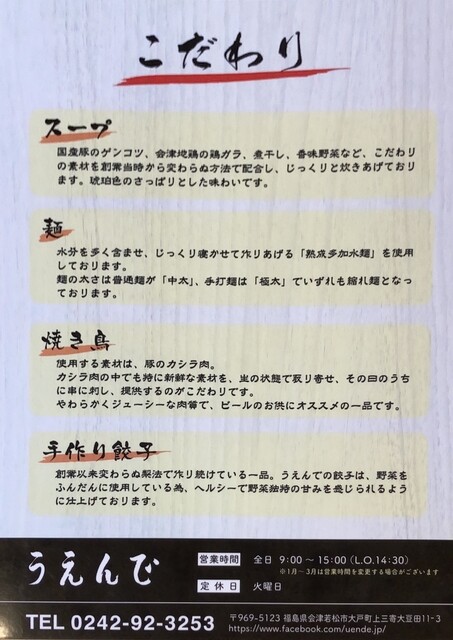 こだわり
スープ
国産豚のゲンコツ、会津地鶏の鶏ガラ、煮干し、香味野菜など、こだわり
の素材を創業当時から変わらぬ方法で配合し、じっくりと炊きあげており
ます。琥珀色のさっぱりとした味わいです。
麺
水分を多く含ませ、じっくり寝かせて作りあげる「熟成多加水麺」を使用
しております。
麺の太さは普通麺が「中太」、手打麺は「極太」でいずれも縮れ麺となっ
ております。
焼き鳥
使用する素材は、豚のカシラ肉。
カシラ肉の中でも特に新鮮な素材を、生の状態で取り寄せ、その日のうち
に串に刺し、提供するのがこだわりです。
やわらかくジューシーな肉質で、ビールのお供にオススメの一品です。
手作り餃子
創業以来変わらぬ製法で作り続けている一品。うえんでの餃子は、野菜を
ふんだんに使用している為、ヘルシーで野菜独特の甘みを感じられるよう
に仕上げております。
うえんで
営業時間 全日 9:00〜15:00(L.O.14:30)
※1月〜3月は営業時間を変更する場合がございます
定休日 火曜日
TEL 0242-92-3253
〒969-5123 福島県会津若松市大戸町上三寄大豆田11-3
https://www.facebook.com/uende.jp/